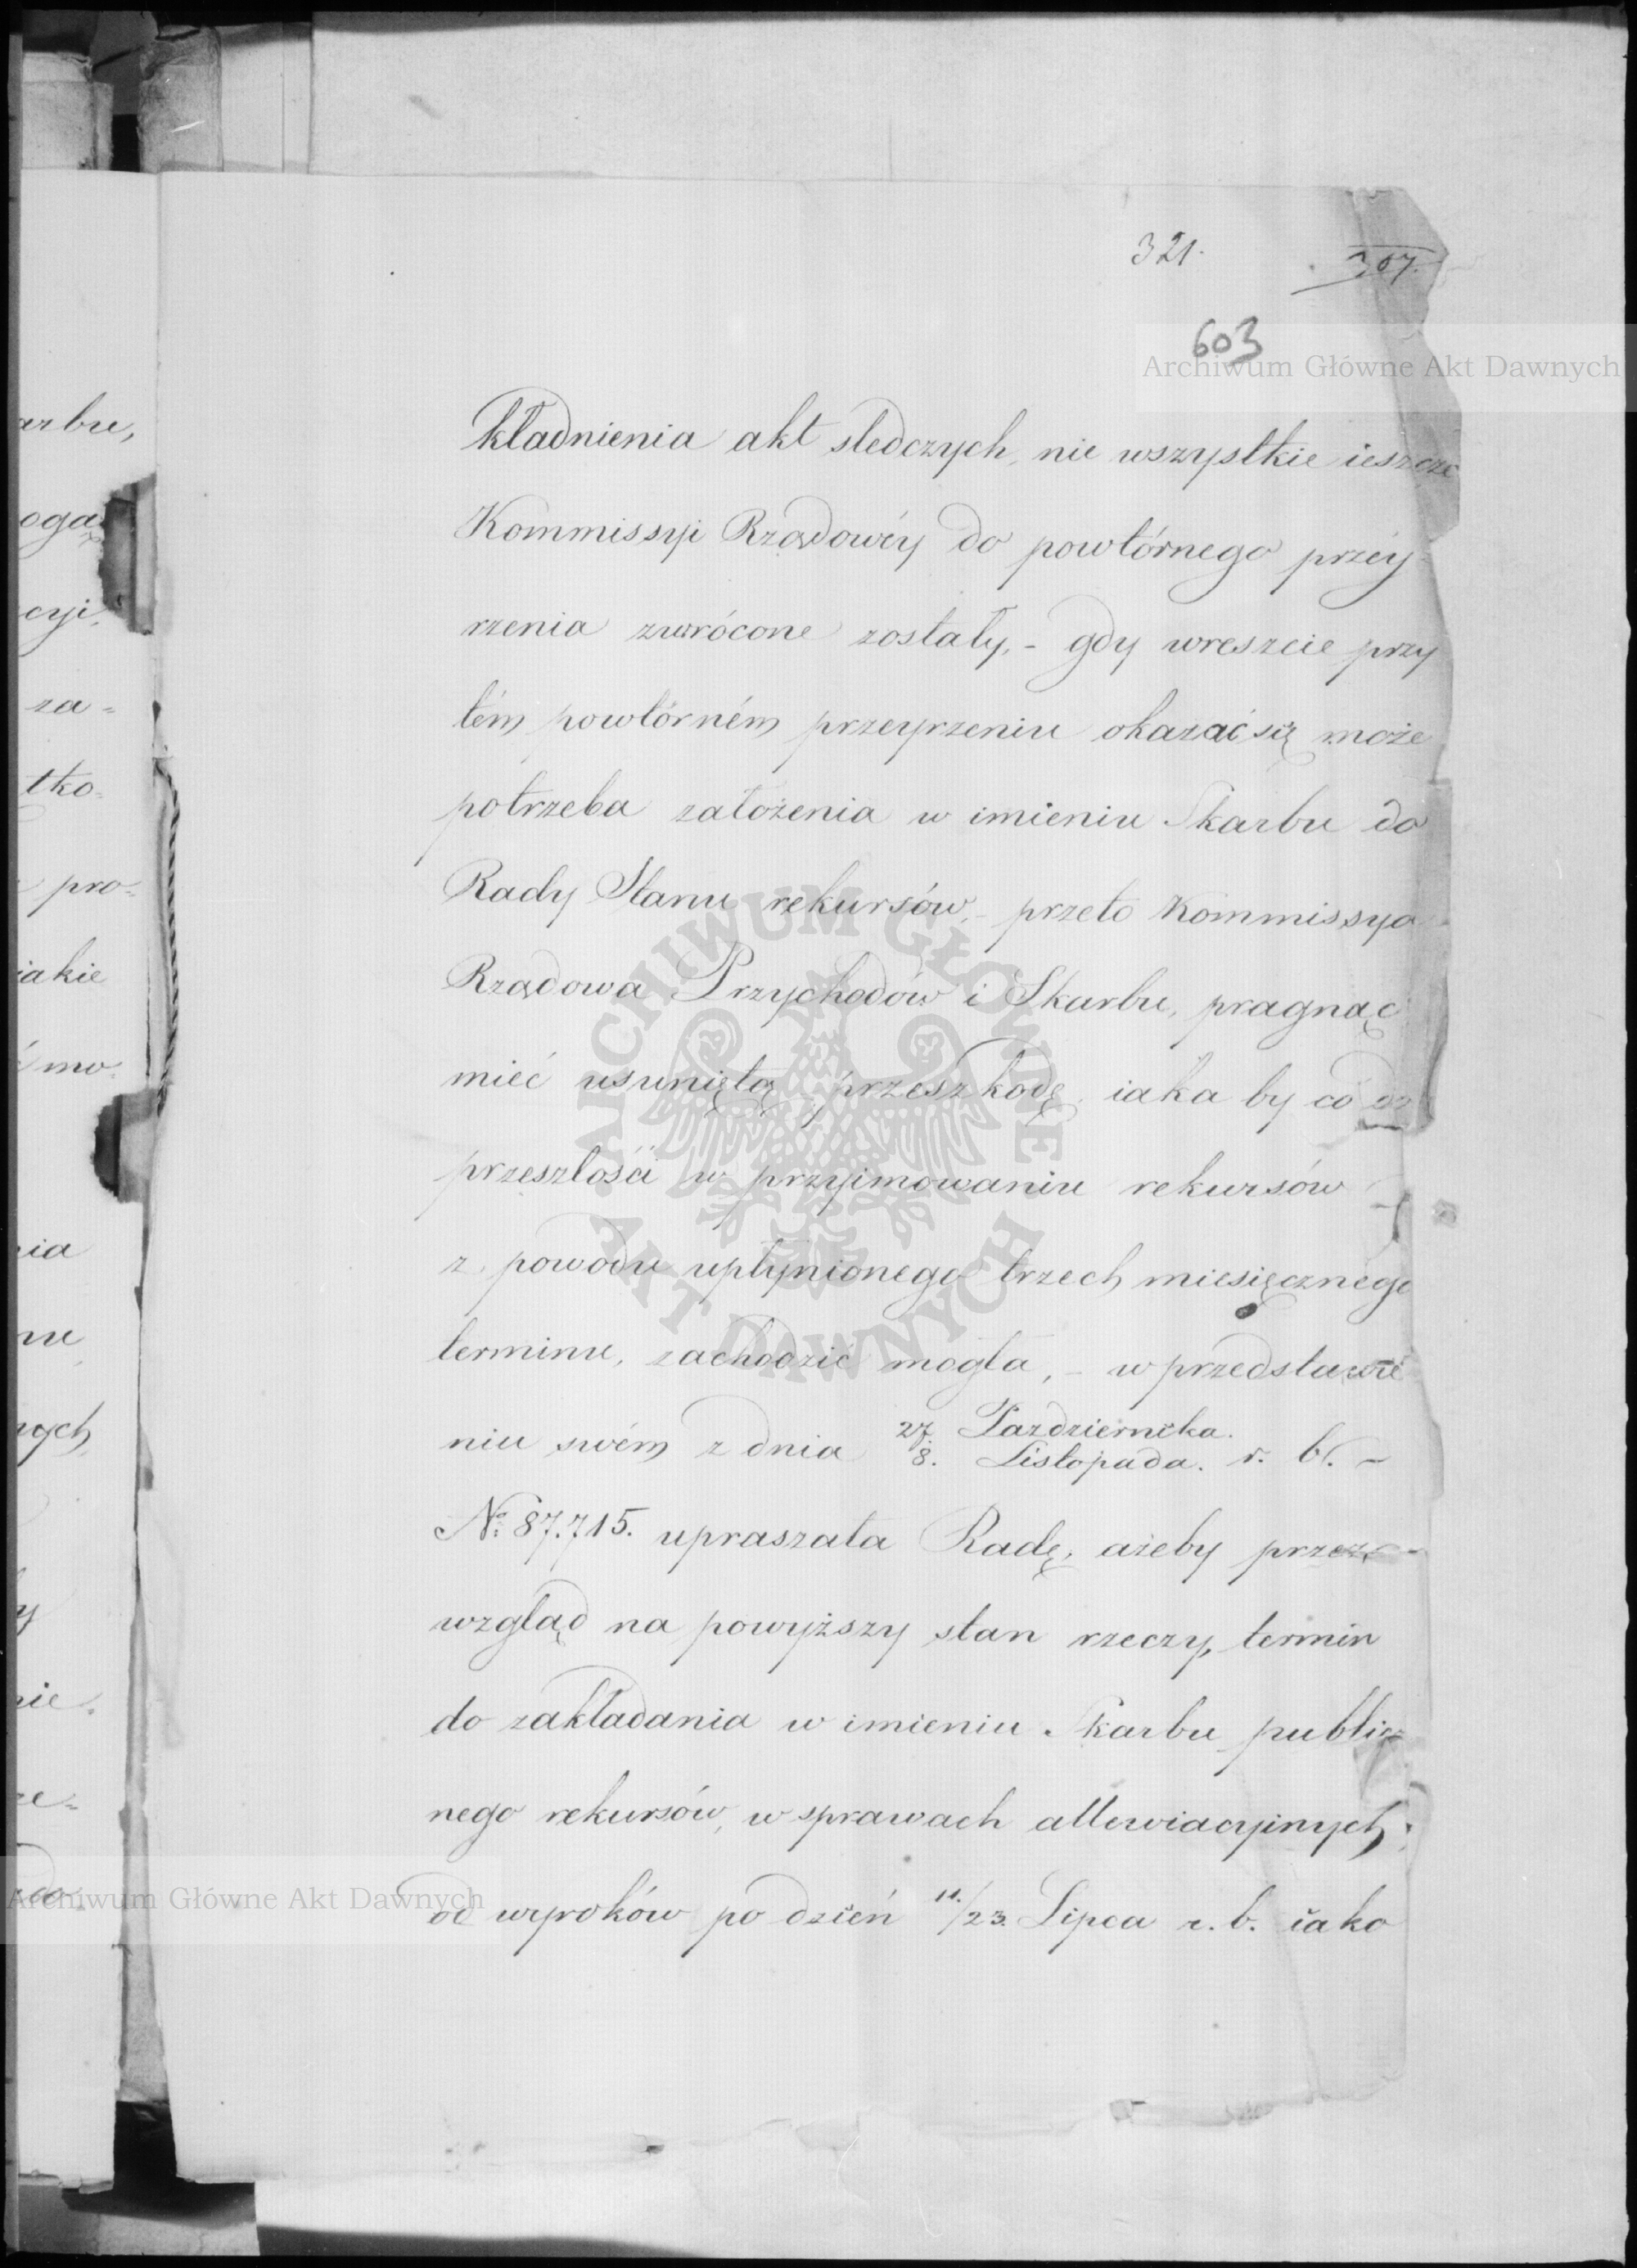 321.
307.
603
Archiwum Główne Akt Dawnych
kładnienia akt sledczych, nie wszystkie ieszcze
Kommissyi Rządowéy do powtórnego przéy-
rzenia zwrócone zostały, - gdy wreszcie przy
tém powtórném przeyrzeniu okazać się może
potrzeba założenia w imieniu Skarbu do
Rady Stanu rekursów, - przeto Kommissya
Rządowa Przychodów i Skarbu, pragnąc
mieć usuniętą przeszkodę, iaka by co do
przeszłości w przyimowaniu rekursów
z powodu upłynionego trzech miesięcznego
terminu, zachodzić mogła, - w przedstawie
niu swém z dnia 27. Pazdziernika. / 8. Listopada. r. b. -
No. 87.715. upraszała Radę, ażeby przez
wzgląd na powyższy stan rzeczy, termin
do zakładania w imieniu Skarbu public
nego rekursów, w sprawach allewiacyinych,
od wyroków po dzień 11./23. Lipca r. b. iako
Archiwum Główne Akt Dawnych
ARCHIWUM GŁÓWNE AKT DAWNYCH
arbu,
ogą
cyi,
za-
tko-
pro-
iakie
mo
nia
nu
nych
y
nie-
ze-